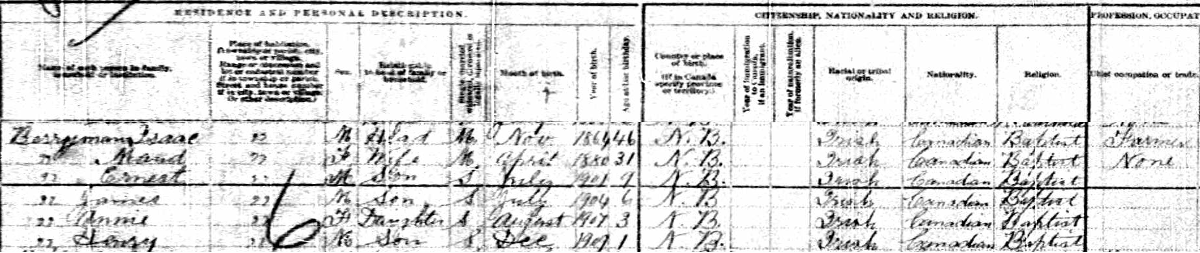 RESIDENCE AND PERSONAL DESCRIPTION. CITIZENSHIP, NATIONALITY AND RELIGION. PROFESSION, OCCUPAT
Name of each person in family, Place of habitation. Sex. Month of birth. Year of birth. Age at last birthday. Country or place of birth. (If in Canada specify province or territory.) Year of immigration to Canada, if an immigrant. Year of naturalization, if formerly an alien. Racial or tribal origin. Nationality. Religion. Chief occupation or trade
Berryman Isaac " M Head M Nov 1864 46 N.B. Irish Canadian Baptist Farmer
" Maud " F Wife M April 1880 31 N.B. Irish Canadian Baptist None
" Ernest " M Son S July 1901 9 N.B. Irish Canadian Baptist
" James " M Son S July 1904 6 N.B. Irish Canadian Baptist
" Annie " F Daughter S August 1907 3 N.B. Irish Canadian Baptist
" Henry " M Son S Dec 1909 1 N.B. Irish Canadian Baptist